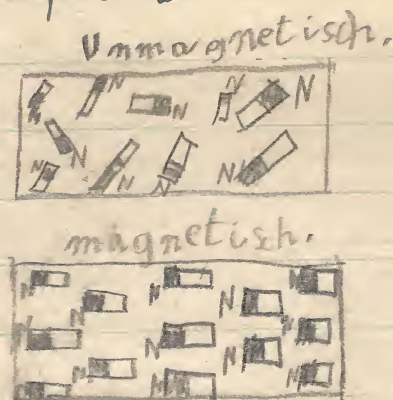 Unmagnetisch.
N N N N N
N N N N N
magnetisch.
N N N N N
N N N N N
N N N